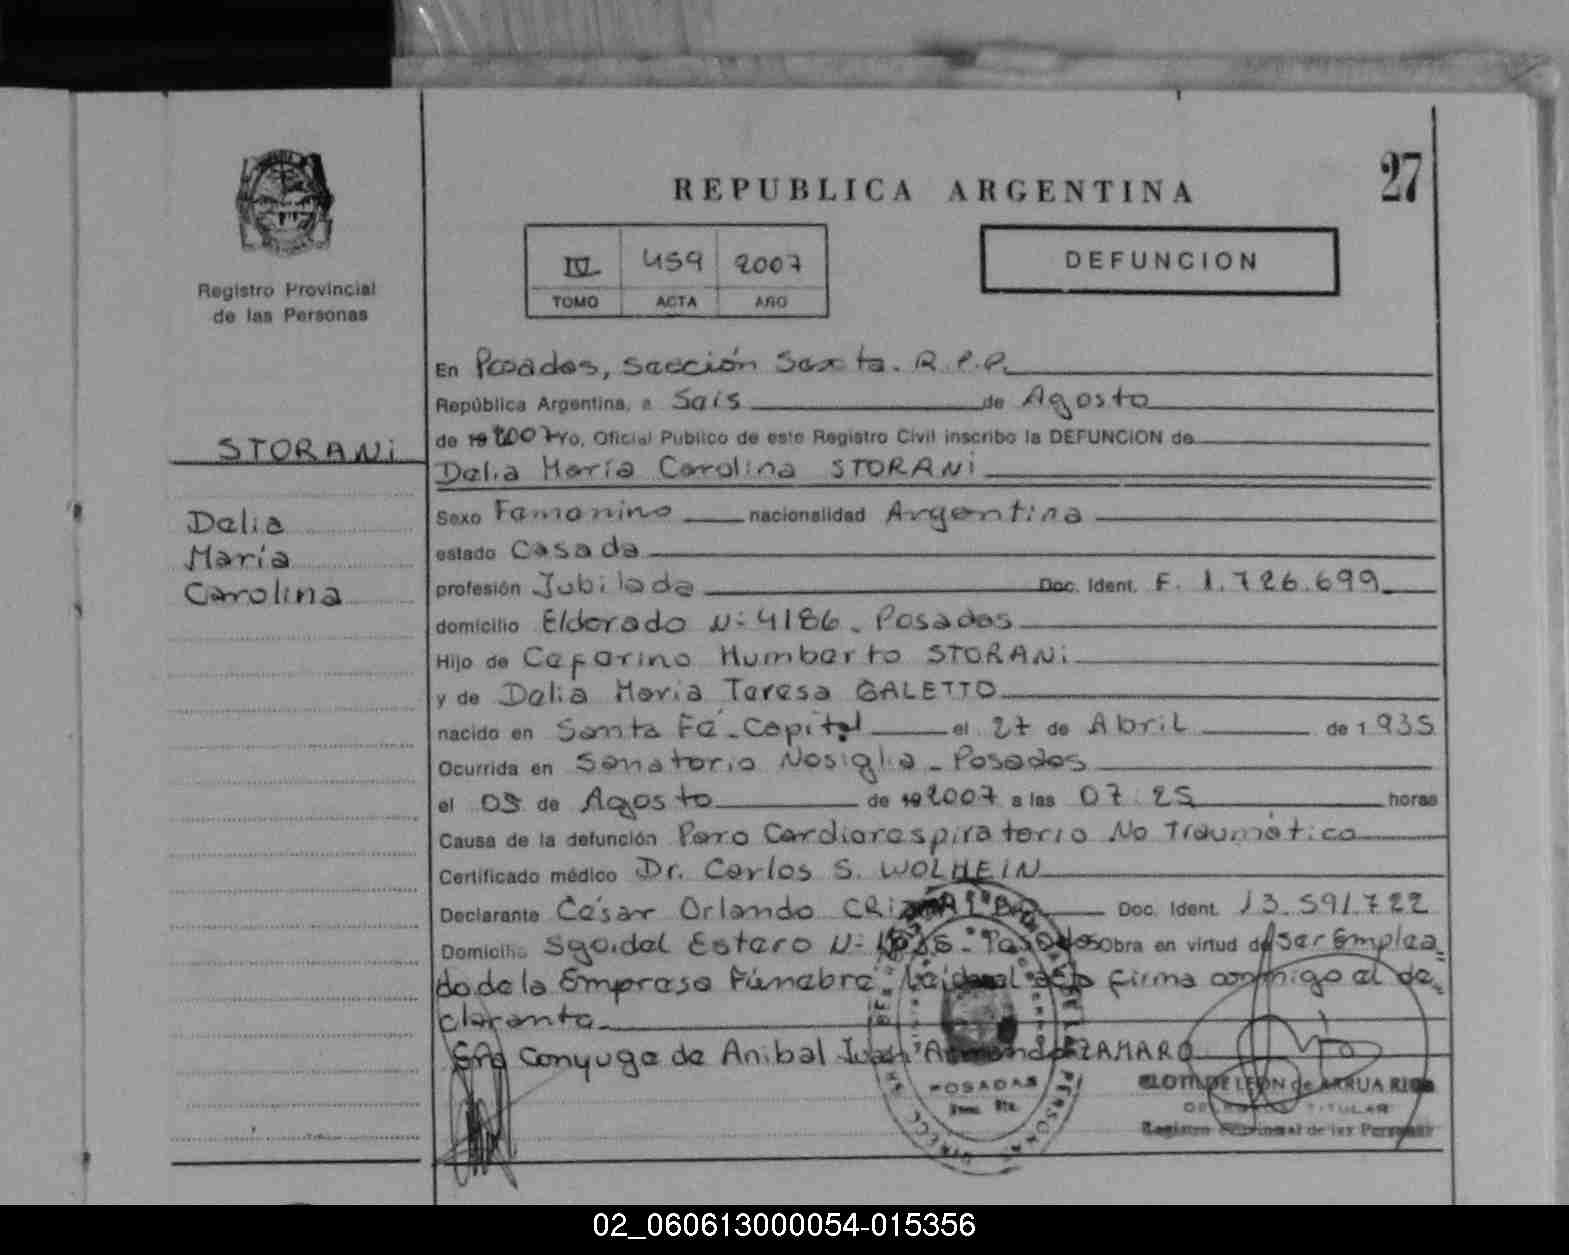 27
REPUBLICA ARGENTINA
IV 459 2007
TOMO ACTA AÑO
DEFUNCION
Registro Provincial
de las Personas
STORANi
Delia
María
Carolina
En Posadas, sección Sexta. R.P.P.
República Argentina, a Seis de Agosto
de 19 2007 Yo, Oficial Publico de este Registro Civil inscribo la DEFUNCION de
Delia María Carolina STORANi
Sexo Femenino nacionalidad Argentina
estado Casada
profesión Jubilada Doc. Ident. F. 1.726.699
domicilio Eldorado N: 4186 - Posadas
Hijo de Ceferino Humberto STORANi
y de Delia María Teresa GALETTO
nacido en Santa Fé - Capital el 27 de Abril de 1935
Ocurrida en Sanatorio Nosiglia - Posadas
el 05 de Agosto de 19 2007 a las 07:25 horas
Causa de la defunción Paro Cardiorespiratorio No Traumático
Certificado médico Dr. Carlos S. WOLHEIN
Declarante César Orlando Doc. Ident. 13.591.722
Domicilio Sgo del Estero N: - Posadas Obra en virtud de Ser Emplea
do de la Empresa Fúnebre. Leída el acta firma conmigo el de
clarante
Era Conyuge de Anibal Juan Armando ZAMARO
POSADAS
CLOTILDE LEON de ARRUA RIOS
TITULAR
Registro Provincial de las Personas
02_060613000054-015356